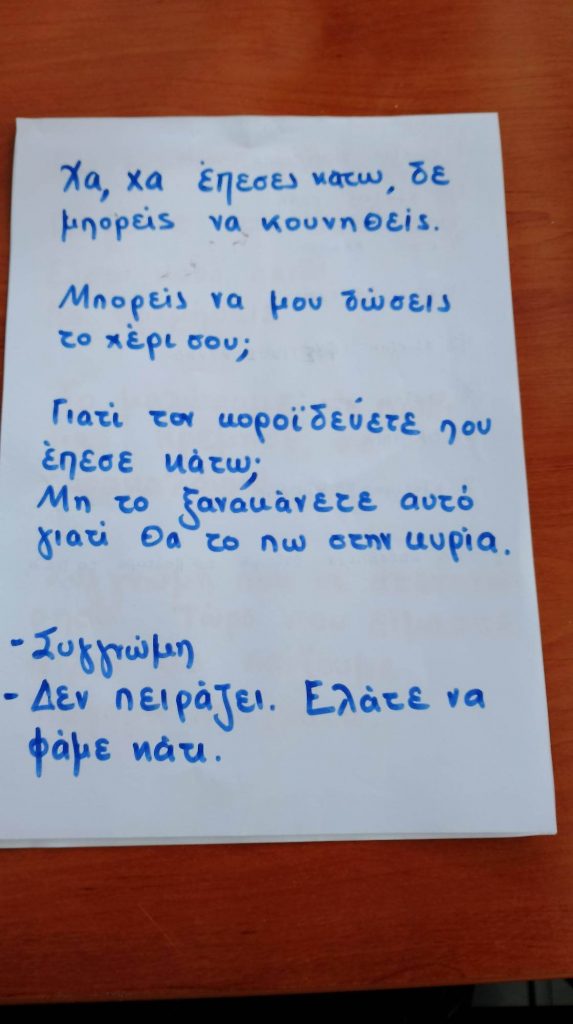 Χα, χα έπεσες κατω, δε
μπορείς να κουνηθείς.
Μπορείς να μου δώσεις
το χέρι σου;
Γιατί τον κοροϊδεύετε που
έπεσε κάτω;
Μη το ξανακάνετε αυτό
γιατί θα το πω στην κυρία.
- Συγγνώμη
- Δεν πειράζει. Ελάτε να
φάμε κάτι.